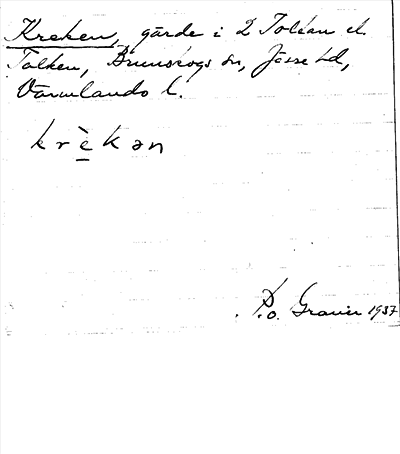 Kreken, gärde i 2 Tolean el.
Tolken, Brunskogs sn, Jösse hd,
Värmlands l.
krèkən
P.o. Graner 1937